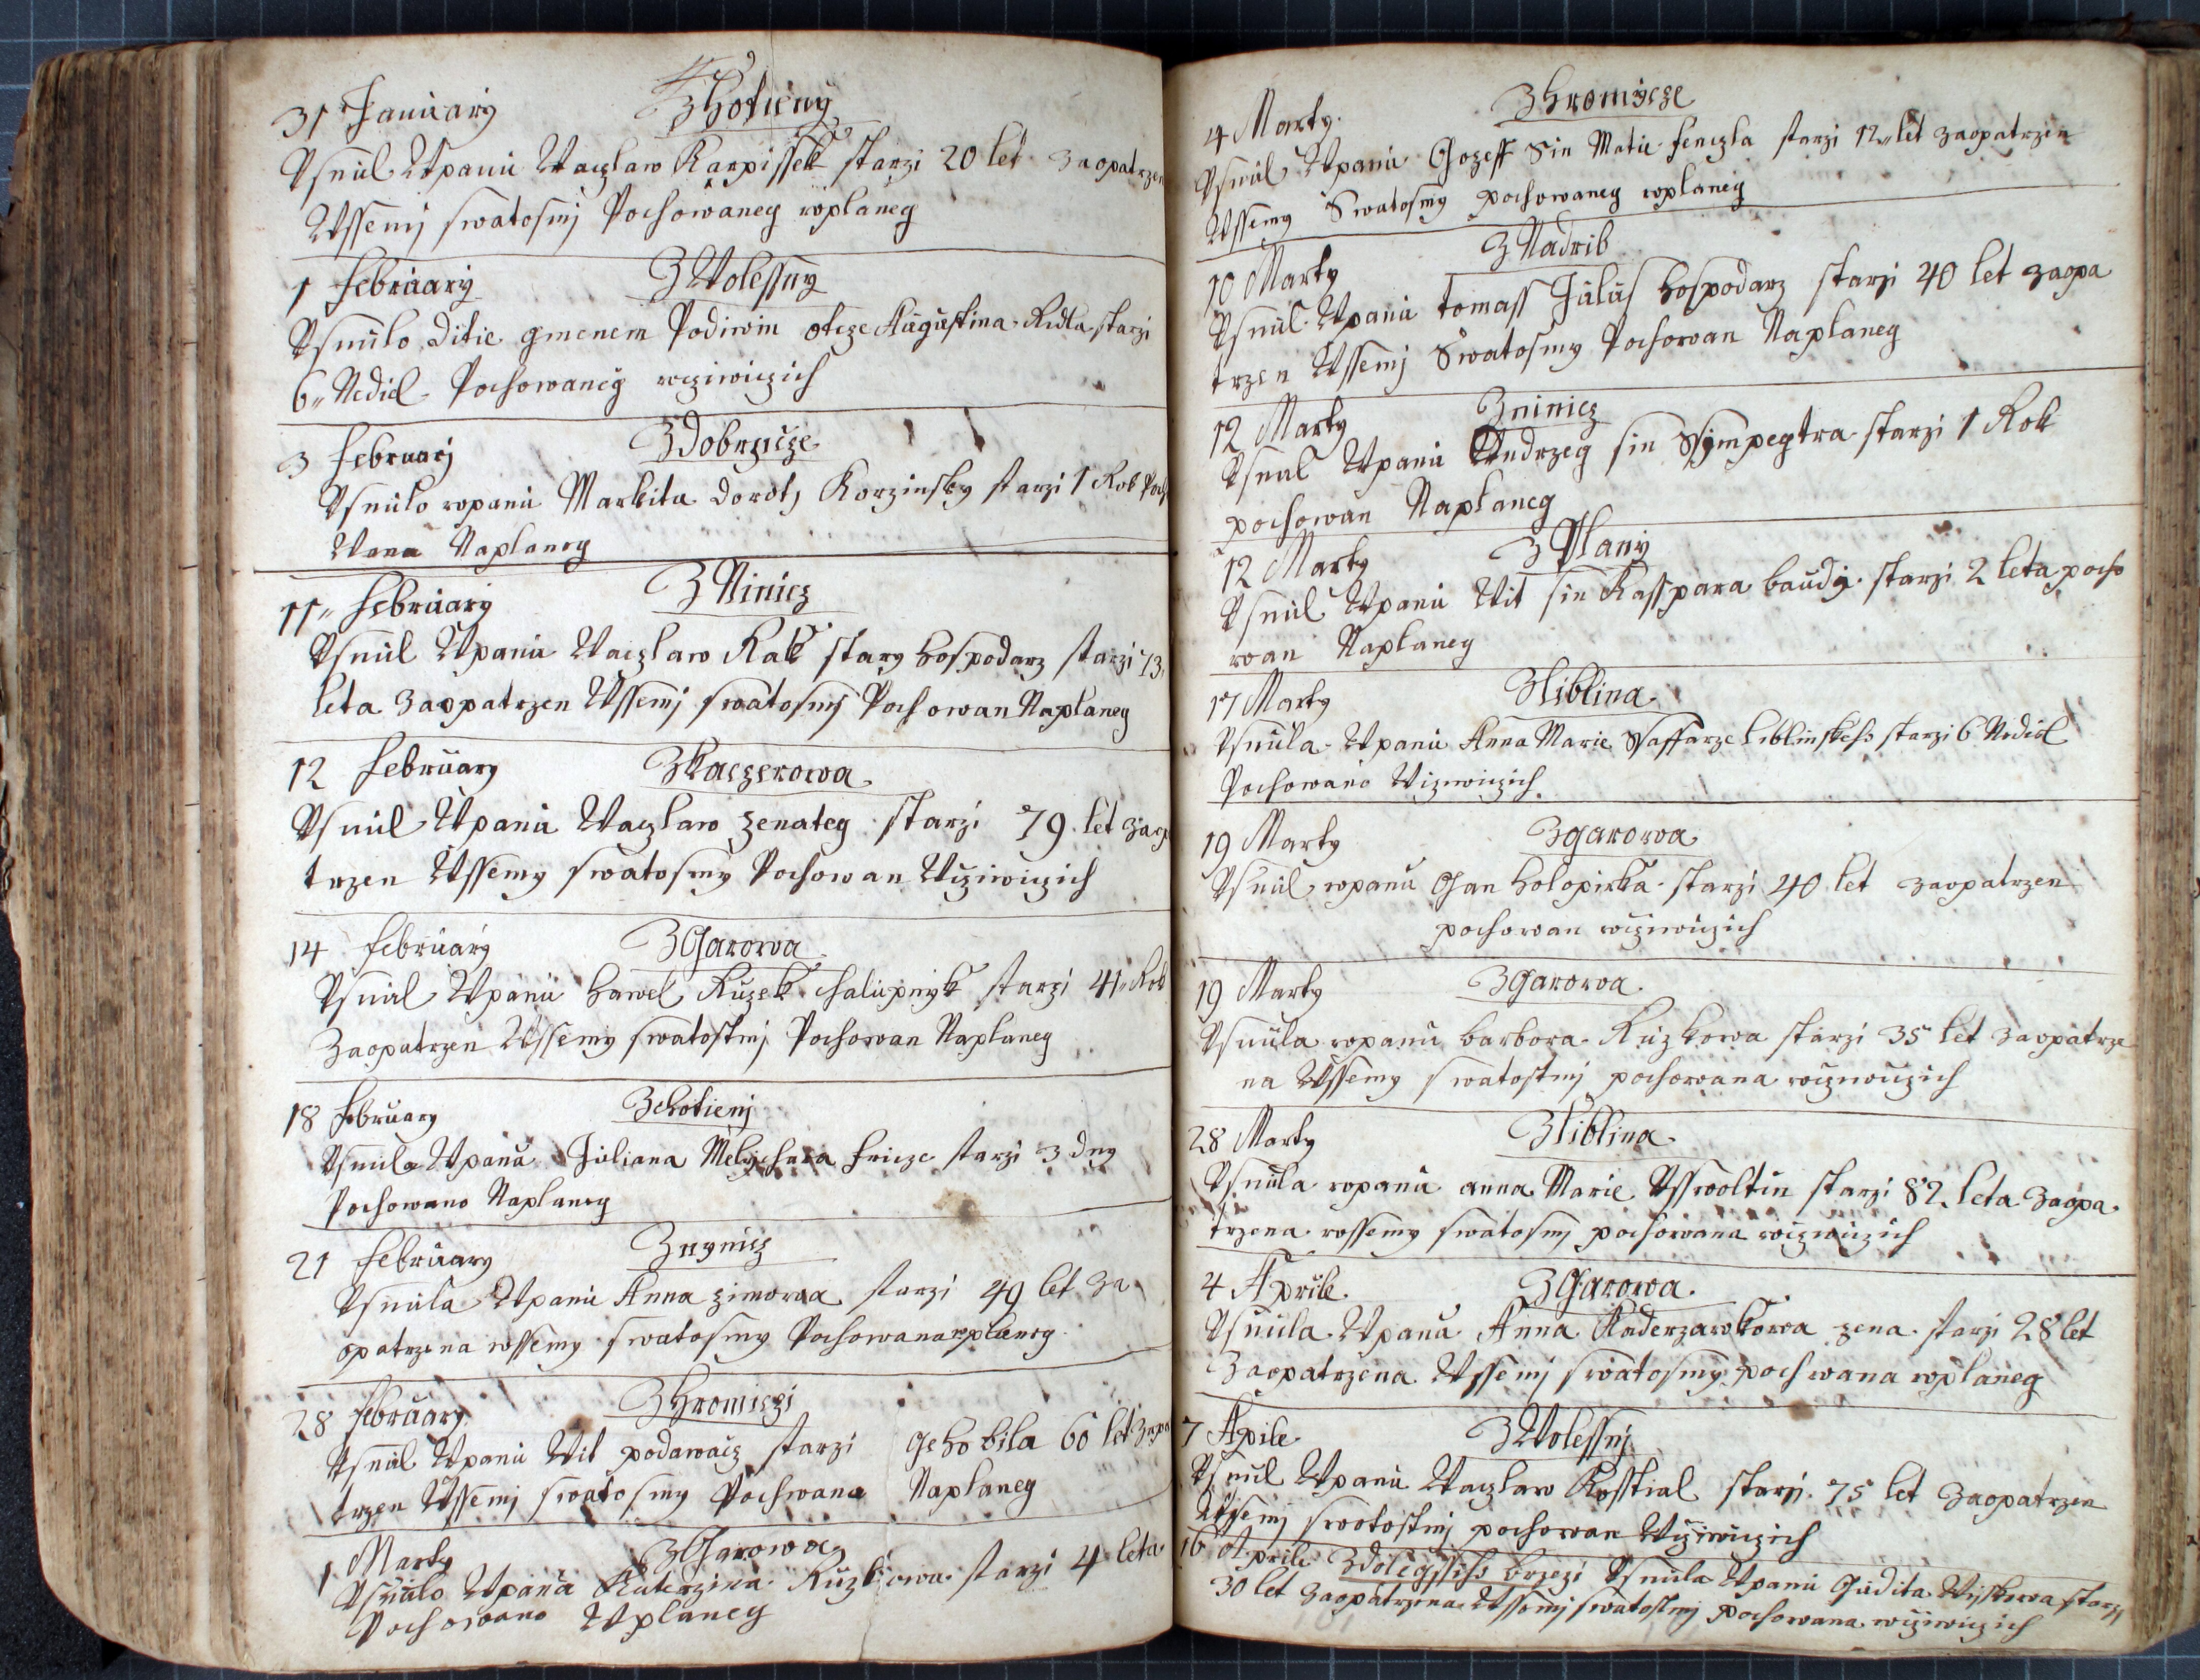 31 January Zhotieny
Vsnul Wpanu Waczlaw Karpissek starzi 20 let zaopatrzen
Wssemj swatosmj Pochowaneg wplaneg
1 February Z Wolessny
Vsnulo ditie gmenem Podiwin otcze Augustina Ridla starzi
6 Nediel Pochowaneg wcziwiczich
3 Februarj Z Dobrzicze
Vsnulo wpanu Markita Dorotj Korzinsky starzi 1 Rok Poch
Wana Naplaneg
11 February Z Ninicz
Vsnul Wpanu Waczlaw Rak stary hospodarz starzi 73
leta Zaopatrzen Wssemj swatosmj Pochowan Naplaneg
12 February Z Kaczerowa
Vsnul Wpanu Waczlaw zenateg starzi 79 let zaop
trzen Wssemy swatosmy Pochowan Wcziwiczich
14 February Z Garowa
Vsnul Wpanu hawel Ruzek chalupnyk starzi 41 Rok
Zaopatrzen Wssemy swatostmj Pochowan Naplaneg
18 February Zchotienj
Vsnula Wpanu Juliana Melychara fricze starzi 3 dny
Pochowano Naplaneg
21 February Z nynicz
Vsnula Wpanu Anna zimowa starzi 49 let Za
opatrzena wssemy swatosmy Pochowana wplaneg
28 February Z Hromiczi
Vsnul Wpanu Wit podawacz starzi geho bila 60 let Zaopa
trzen Wssemj swatosmy Pochwana Naplaneg
1 Marty Z Garowa
Vsnulo Wpanu Katerzina Ruzkowa starzi 4 leta
Pochowano Wplaneg
4 Marty Z hromicze
Vsnul Wpanu Gozeff Sin Matie fenczla starzi 12 let zaopatrzen
Wssemy Swatosmy pochowaneg wplaneg
10 Marty Z Nadrib
Vsnul Wpanu tomass Julus hospodarz starzi 40 let zaopa
trzen Wssemj Swatosmy Pochowan Naplaneg
12 Marty Z ninicz
Vsnul Wpanu Andrzeg sin Sympegtra starzi 1 Rok
pochowan Naplaneg
12 Marty Z Plany
Vsnul Wpanu Wit sin Kasspara baudy starzi 2 leta pocho
wan Naplaneg
17 Marty Z liblina
Vsnula Wpanu Anna Marie Ssaffarze liblinskeho starzi 6 Nediel
Pochowano Wcziwiczich
19 Marty Z garowa
Vsnul wpanu Gan holopirka starzi 40 let zaopatrzen
pochowan wcziwiczich
19 Marty Z Garowa
Vsnula wpanu barbora Ruzkowa starzi 35 let zaopatrze
na Wssemy swatostmj pochowana wcziwiczich
28 Marty Z liblina
Vsnula wpanu anna Marie Vsswoltin starzi 82 leta Zaopa
trzena wssemy swatosmj pochowana wcziwiczich
4 Aprile Z Garowa
Vsnula Wpanu Anna Kaderzawkowa zena starzi 28 let
Zaopatrzena Wssemj swatosmy pochwana wplaneg
7 Apile Z Wolessnj
Vsnul Wpanu Waczlaw Kosstial starzi 75 let Zaopatrzen
Wssemj swotostmj pochowan Wcziwiczich
16 Aprile Zdolegssiho brzezi Vsnula Wpanu Gudita Wyskowa starzj
30 let Zaopatrzena Wssemj swatostmj pochowana wcziwiczich